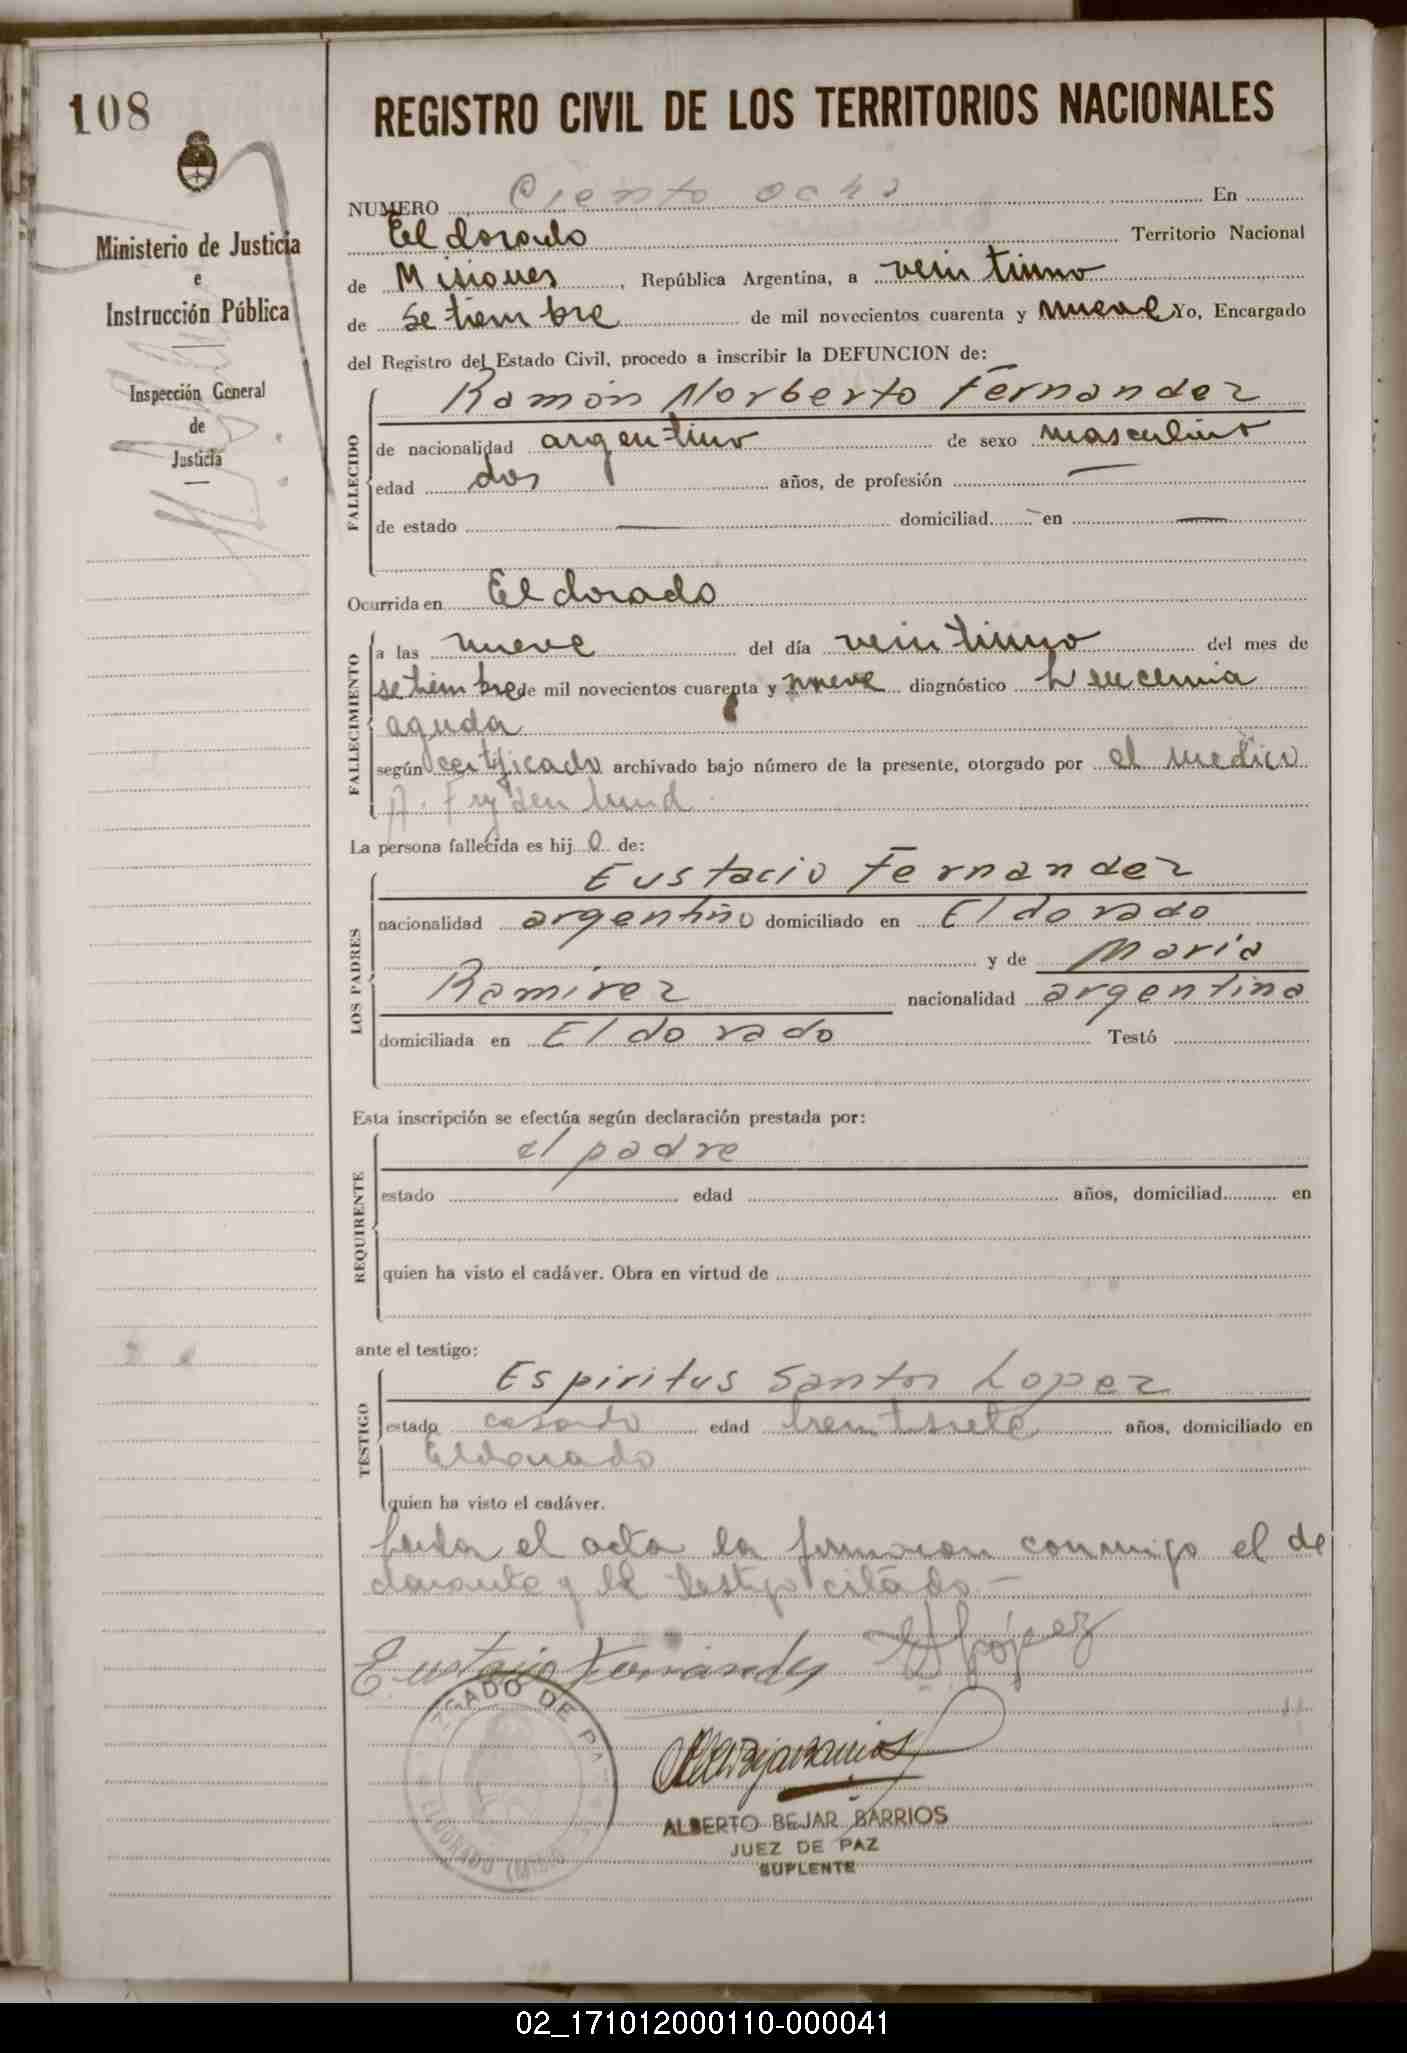 108
REGISTRO CIVIL DE LOS TERRITORIOS NACIONALES
Ministerio de Justicia
e
Instrucción Pública
Inspección General
de
Justicia
NUMERO Ciento ocho En
Eldorado Territorio Nacional
de Misiones, República Argentina, a veintiuno
de setiembre de mil novecientos cuarenta y nueve Yo, Encargado
del Registro del Estado Civil, procedo a inscribir la DEFUNCION de:
FALLECIDO
Ramón Norberto Fernandez
de nacionalidad argentino de sexo masculino
edad dos años, de profesión —
de estado — domiciliad - en —
Ocurrida en Eldorado
FALLECIMIENTO
a las nueve del día veintiuno del mes de
setiembre de mil novecientos cuarenta y nueve diagnóstico Leucemia
aguda
según certificado archivado bajo número de la presente, otorgado por el medico
A.
La persona fallecida es hijo de:
LOS PADRES
Eustacio Fernandez
nacionalidad argentino domiciliado en Eldorado
y de Maria
Ramirez nacionalidad argentina
domiciliada en Eldorado Testó
Esta inscripción se efectúa según declaración prestada por:
REQUIRENTE
el padre
estado edad años, domiciliad en
quien ha visto el cadáver. Obra en virtud de
ante el testigo:
TESTIGO
Espiritus Santos Lopez
estado casado edad treintisiete años, domiciliado en
Eldorado
quien ha visto el cadáver.
el acta la firmaron conmigo el de
clarante y el testigo citado.—
Eustacio Fernandez E S López
ZGADO DE PA
ELDORADO (Mnes
ALBERTO BEJAR BARRIOS
JUEZ DE PAZ
SUPLENTE
02_171012000110-000041